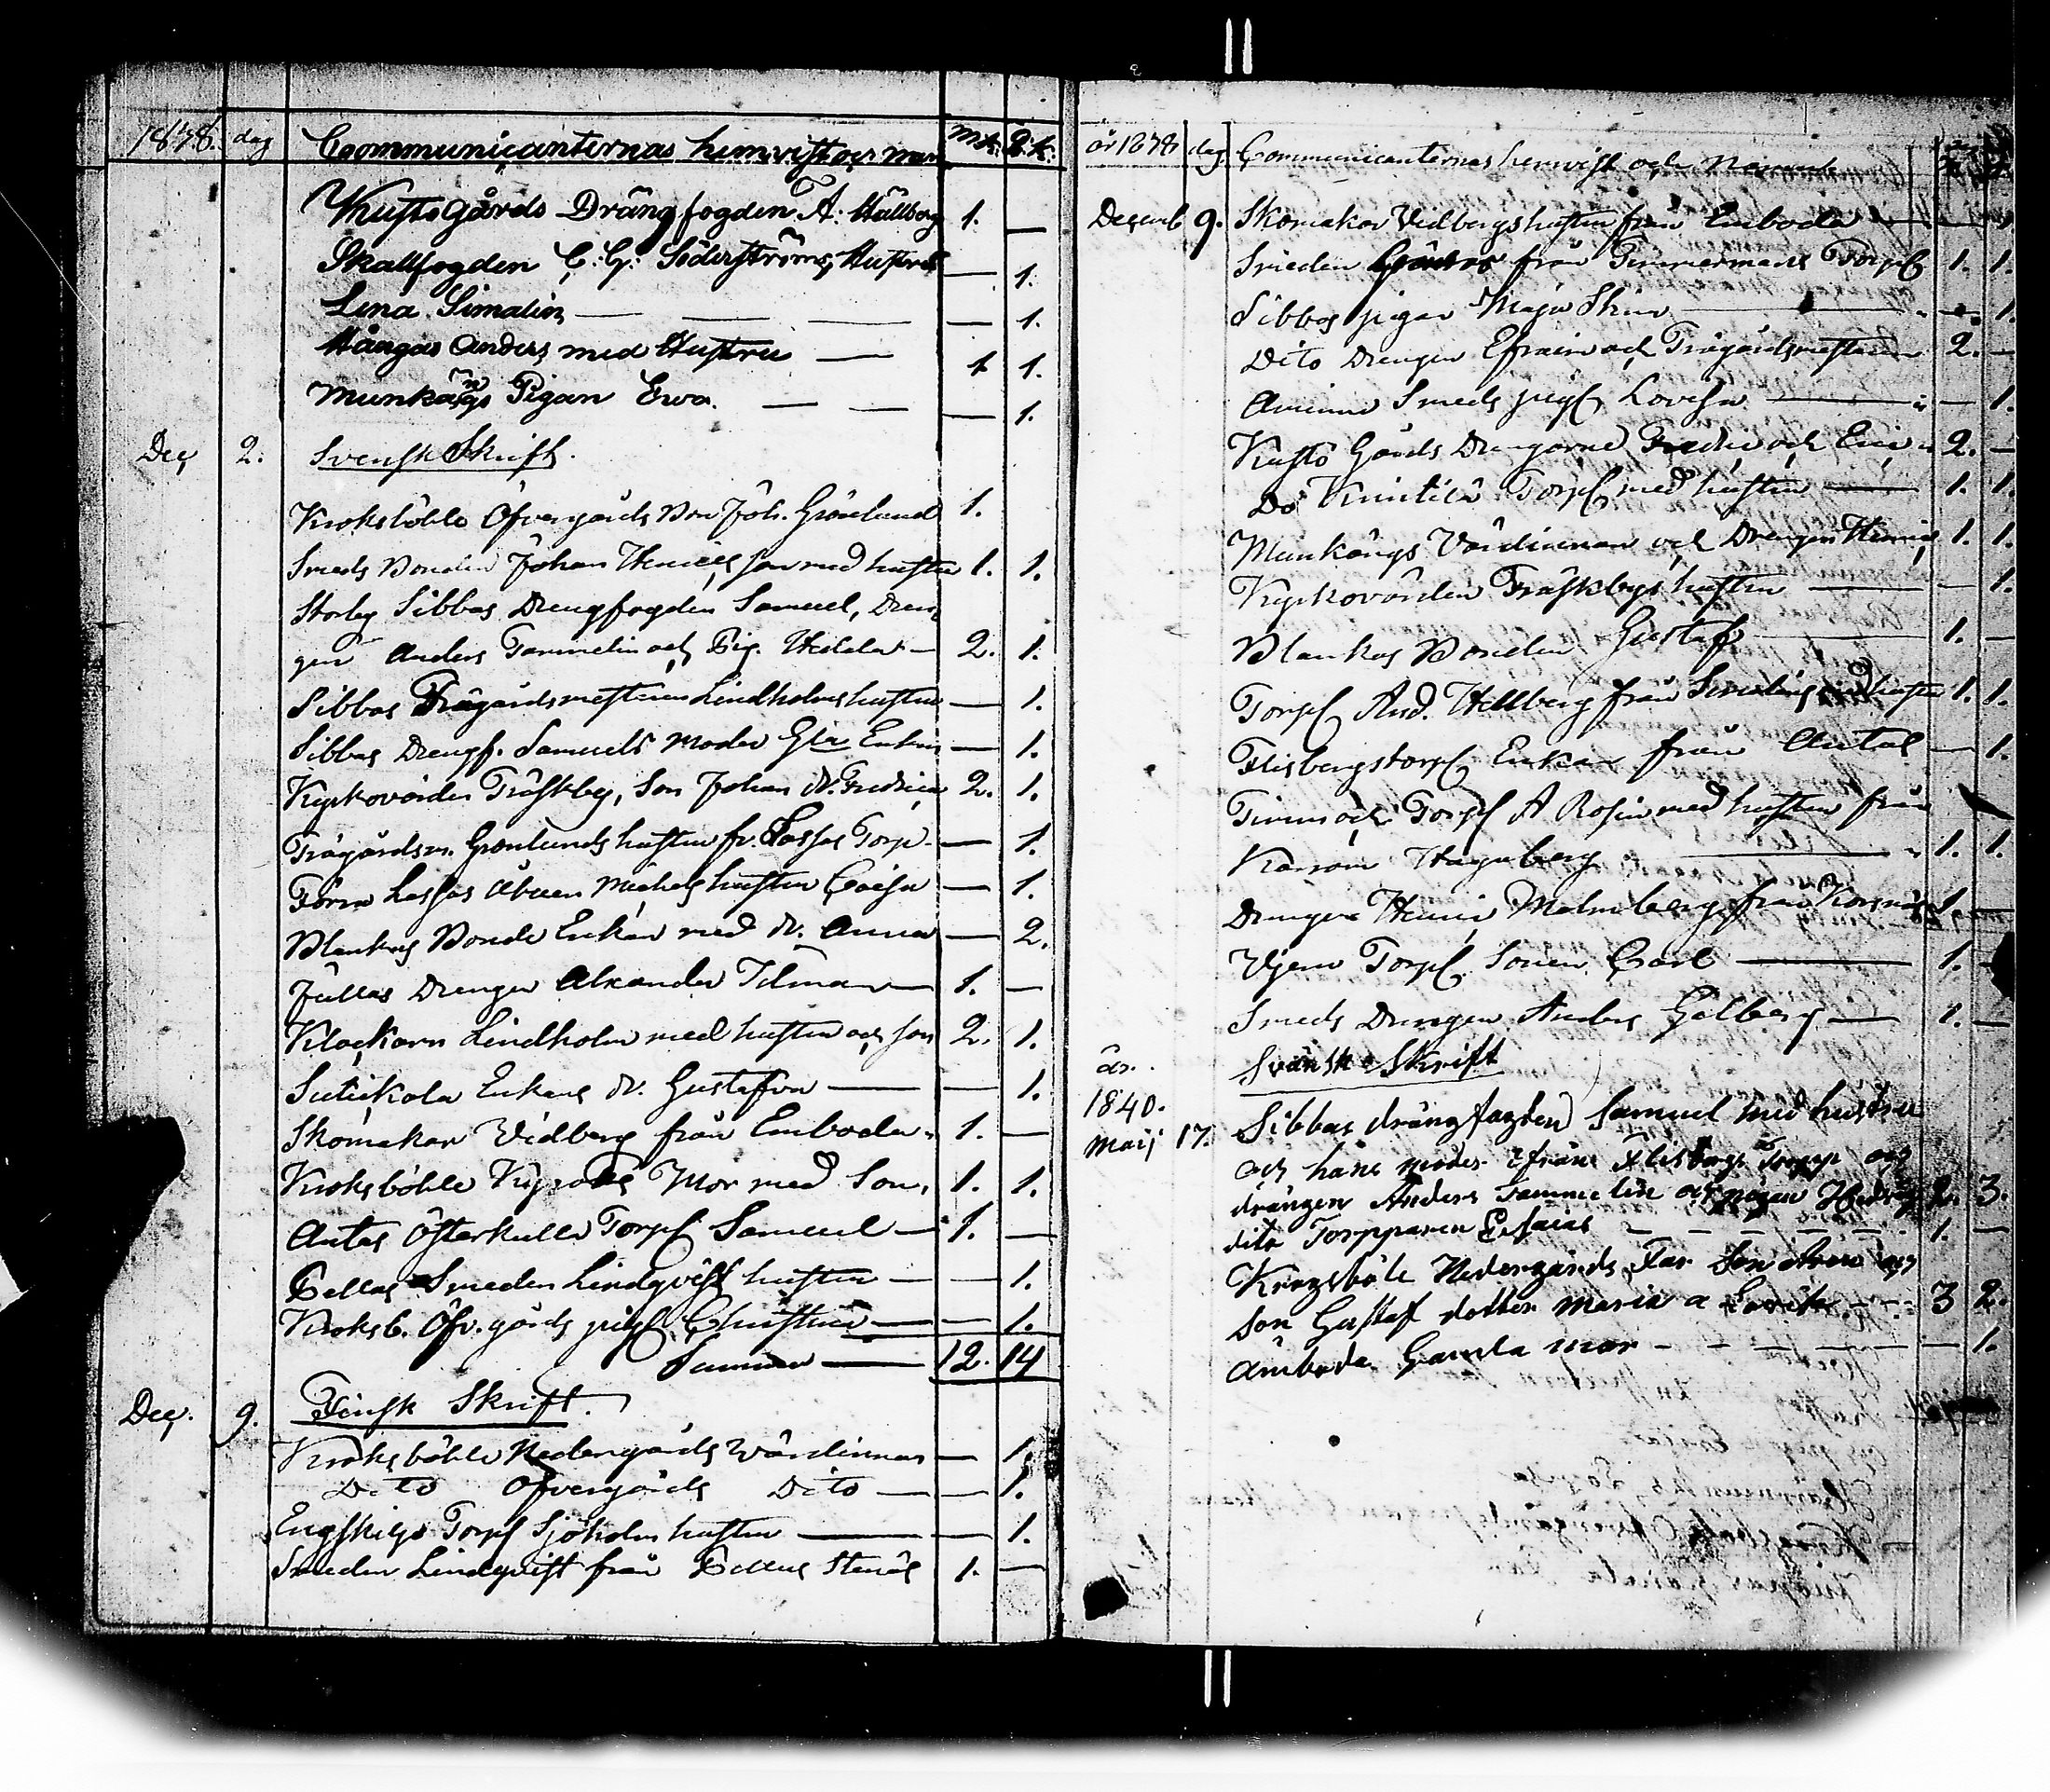 1838. dag Communicanternas hemvist och namn Mk: Qk:
Kustö Gårds Drängfogden A: Hällberg 1. —
Skallfogden C: G: Söderströms Hustru — 1.
Lena Simalin — — — — 1.
Hångas Anders med Hustru — 1 1.
Munkängs Pigan Ewa. — — — 1.
Dec 2. Svensk Skrift.
Kroksböhle Öfvergårds Bon Joh. Grönlund 1.
Smeds Bonden Johan Henricsson med hustru 1. 1.
Storby Sibbas Drengfogden Samuel, Dren
gen Anders Tammelin och Pig. Hedda — 2. 1.
Sibbas Trägårdsmestaren Lindholms hustru — 1.
Sibbas Drengf. Samuels Moder Enkan — 1.
Kyrkovärden Träskby, Son Johan D. Fredrica 2. 1.
Trägårdsm. Grönlunds hustru fr. Lassas Torp — 1.
Förra Lassas Åbuen Michels hustru Caisa — 1.
Blankas Bonde Enkan med D. Anna — 2.
Jullas Drengen Alexander Idman — 1. —
Klockarn Lindholm med hustru och son 2. 1.
Enkans D. Gustafva — — 1.
Skomakar Vidberg från Emboda 1. —
Kroksböhle Mor med Son, 1. 1.
Antas Österkulla Torp. Samuel — 1. —
Pellas Smeden Lindqvist hustru — — 1.
Kroksb. Öfv. gårds pig. Christina — — 1.
Summa — 12. 14
Dec. 9. Finsk Skrift.
Kroksböhle Nedergårds Värdinnan — 1.
Dito Öfvergårds Dito — — 1.
Engskilds Torp. Sjöholms hustru — — 1.
Smeden Lindqvist från Pellas Stenås 1. —
år 1838 dag Communicanternas hemvist och Namn
Decemb 9. Skomakar Vidbergs hustru från Emboda — — 1
Smeden från Timmermans Torp 1. 1.
Sibbas pigan Maja Stina — — 1.
Dito Drengen Efraim och Trägårdsmestaren 2. —
Smeds pig. Lovisa — — 1.
Kustö Gårds Drengarne Fredric och Eric 2. —
Do Torp. med hustru — 1. 1.
Munkängs Värdinnan och Drengen Henric 1. 1.
Kyrkovärden Träskbys hustru — — 1.
Blankas Bonden Gustaf — 1. —
Torp. And. Hellberg från med hustru 1. 1.
Flisbergstorp. Enkan från Antas — 1.
Torp. A Rosin med hustru från
Hagaberg — 1. 1.
Drengen Henric Malmberg från Korsnäs 1. —
Torp. Sonen Carl — 1. —
Smeds Drengen Anders Gelberg — 1. —
år. Svänsk Skrift
1840.
Maij 17. Sibbas drängfogden Samuel med hustru
och hans moder ifrån Flisbergs Torpp och
drängen Anders Tammelin och pigan Hedvig 2. 3.
dito Torpparen Esaias — — — — 1. —
Krogsböle Nedergårds Far Son Aron och
Son Gustaf dotter Maria a Lovisa — — 3 2.
Ämboda Gamla mor — — — — — 1.